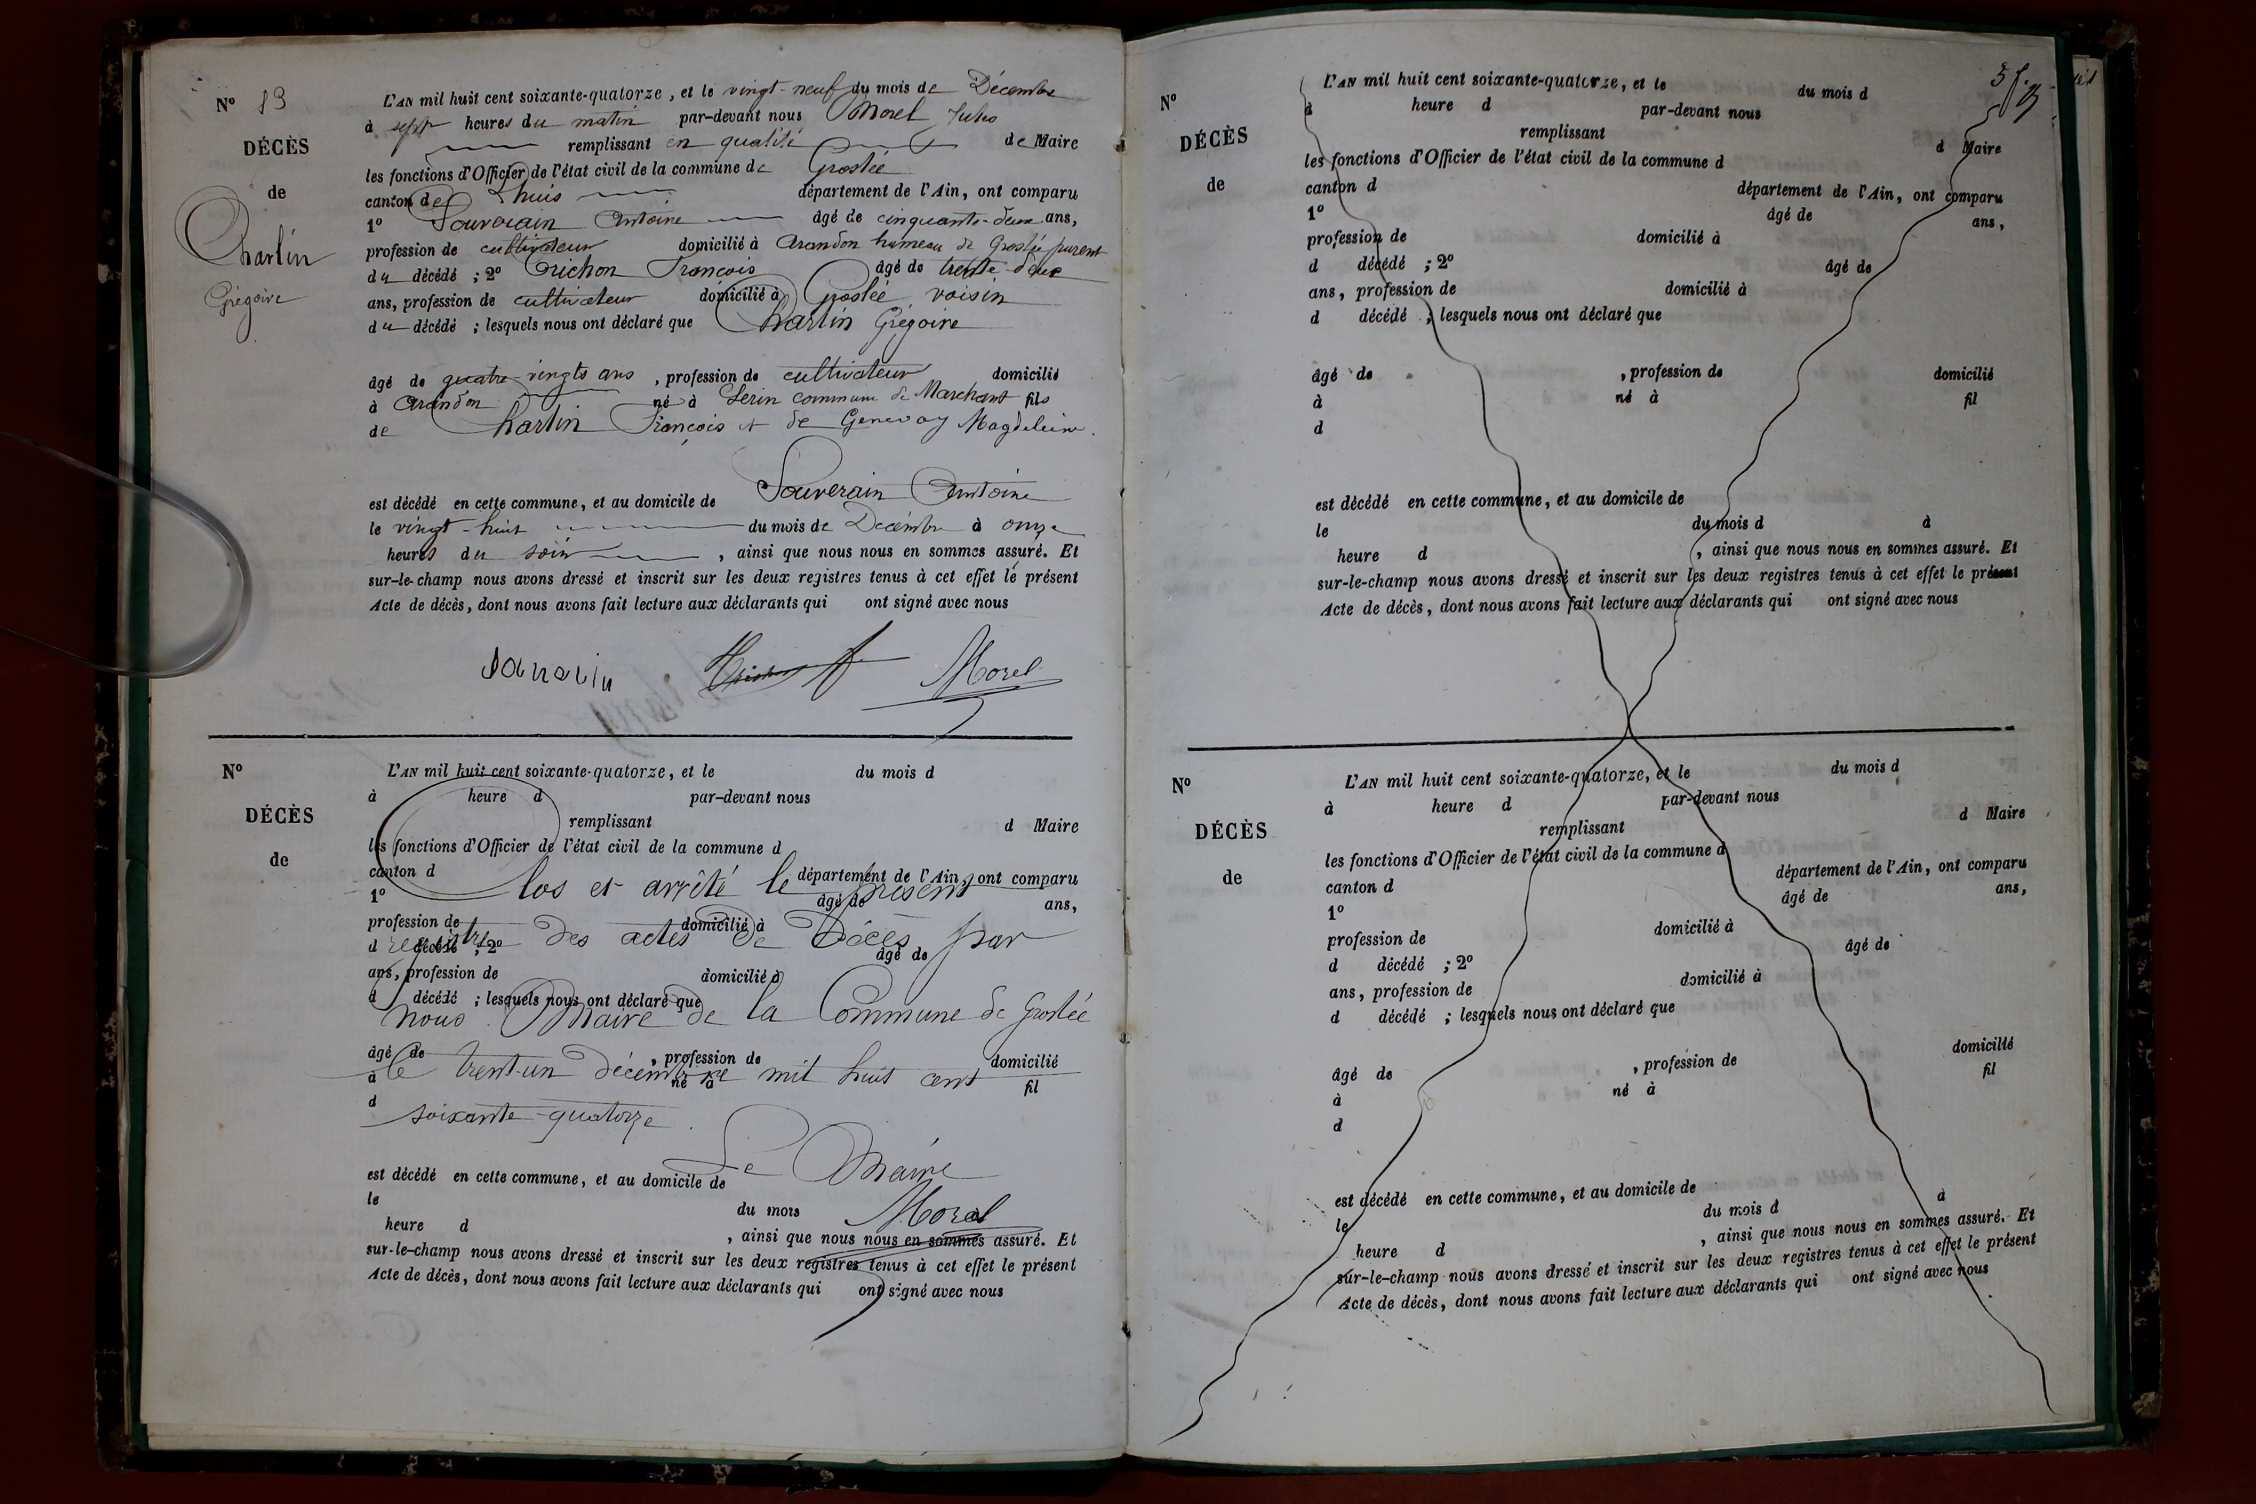 N° 13
DÉCÈS
de
Charlin
Grégoire
L'AN mil huit cent soixante-quatorze, et le vingt-neuf du mois de Décembre
à sept heures du matin par-devant nous Morel Jules
remplissant en qualité de Maire
les fonctions d'Officier de l'état civil de la commune de Groslée
canton de Lhuis département de l'Ain, ont comparu
1° Souverain Antoine âgé de cinquante-deux ans,
profession de cultivateur domicilié à Arandon hameau de Groslée parent
du décédé ; 2° Trichon François âgé de trente-deux
ans, profession de cultivateur domicilié à Groslée, voisin
du décédé ; lesquels nous ont déclaré que Charlin Grégoire
âgé de quatre-vingts ans, profession de cultivateur domicilié
à Arandon né à Serin commune de Marchant fils
de Charlin François et de Genevay Magdeleine.
est décédé en cette commune, et au domicile de Souverain Antoine
le vingt-huit du mois de Décembre à onze
heures du soir, ainsi que nous nous en sommes assuré. Et
sur-le-champ nous avons dressé et inscrit sur les deux registres tenus à cet effet le présent
Acte de décès, dont nous avons fait lecture aux déclarants qui ont signé avec nous
Morel
N°
DÉCÈS
de
L'AN mil huit cent soixante-quatorze, et le du mois d
à heure d par-devant nous
remplissant d Maire
les fonctions d'Officier de l'état civil de la commune d
canton d département de l'Ain, ont comparu
Clos et arrêté le présent
1° âgé de ans,
profession de domicilié à
registre des actes de Décès par
d décédé ; 2° âgé de
ans, profession de domicilié à
d décédé ; lesquels nous ont déclaré que
nous Maire de la Commune de Groslée
âgé de , profession de domicilié
le trent-un décembre mil huit cent
à né à fil
d
soixante-quatorze.
Le Maire
est décédé en cette commune, et au domicile de
le du mois
Morel
heure d , ainsi que nous nous en sommes assuré. Et
sur-le-champ nous avons dressé et inscrit sur les deux registres tenus à cet effet le présent
Acte de décès, dont nous avons fait lecture aux déclarants qui ont signé avec nous
N°
DÉCÈS
de
L'AN mil huit cent soixante-quatorze, et le du mois d
à heure d par-devant nous
remplissant d Maire
les fonctions d'Officier de l'état civil de la commune d
canton d département de l'Ain, ont comparu
1° âgé de ans,
profession de domicilié à
d décédé ; 2° âgé de
ans, profession de domicilié à
d décédé ; lesquels nous ont déclaré que
âgé de , profession de domicilié
à né à fil
d
est décédé en cette commune, et au domicile de
le du mois d à
heure d , ainsi que nous nous en sommes assuré. Et
sur-le-champ nous avons dressé et inscrit sur les deux registres tenus à cet effet le présent
Acte de décès, dont nous avons fait lecture aux déclarants qui ont signé avec nous
N°
DÉCÈS
de
L'AN mil huit cent soixante-quatorze, et le du mois d
à heure d par-devant nous
remplissant d Maire
les fonctions d'Officier de l'état civil de la commune d
canton d département de l'Ain, ont comparu
1° âgé de ans,
profession de domicilié à
d décédé ; 2° âgé de
ans, profession de domicilié à
d décédé ; lesquels nous ont déclaré que
âgé de , profession de domicilié
à né à fil
d
est décédé en cette commune, et au domicile de
le du mois d à
heure d , ainsi que nous nous en sommes assuré. Et
sur-le-champ nous avons dressé et inscrit sur les deux registres tenus à cet effet le présent
Acte de décès, dont nous avons fait lecture aux déclarants qui ont signé avec nous